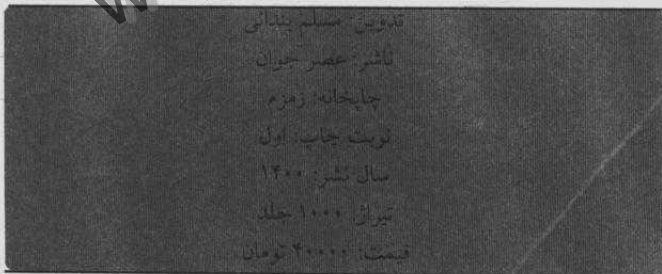 تدوین: مسلم بندانی
ناشر: عصر جوان
چاپخانه: زمزم
نوبت چاپ: اول
سال نشر: ۱۴۰۰
تیراژ: ۱۰۰۰ جلد
قیمت: ۴۰۰۰۰ تومان